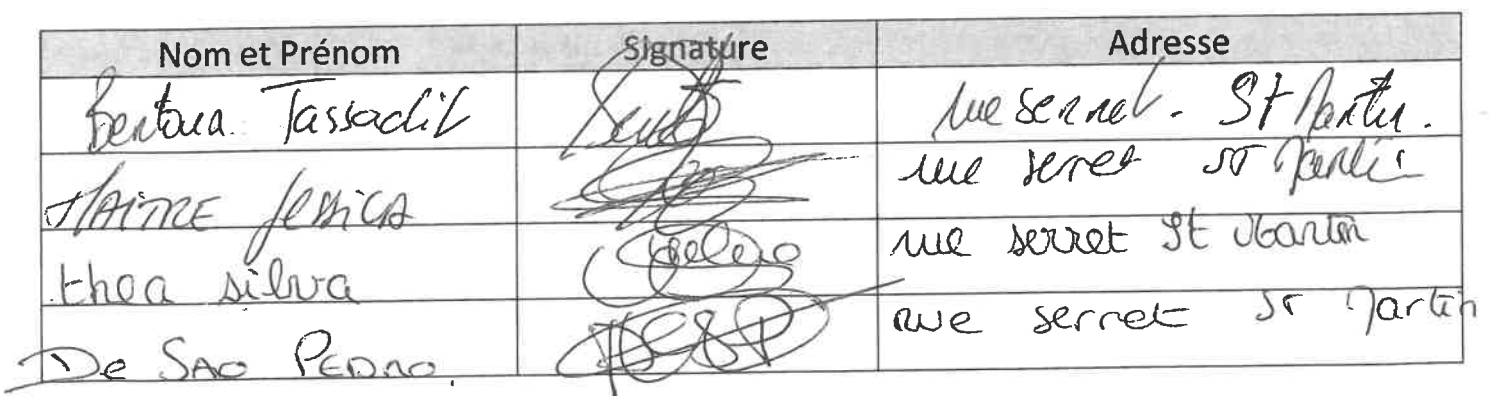 Nom et Prénom Signature Adresse
Bentoua Tassadit rue serret. St Martin.
MAITRE Jessica rue serret ST Martin
thea silva rue serret St Martin
De SAO PEDRO. rue serret ST Martin